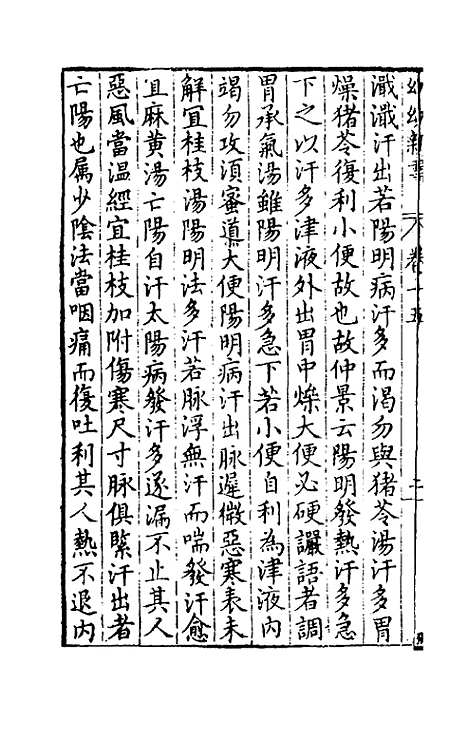 幼幼新書 卷十五 二
濈濈汗出若陽明病汗多而渴勿與猪苓湯汗多胃
燥猪苓復利小便故也故仲景云陽明發熱汗多急
下之以汗多津液外出胃中燥大便必硬讝語者調
胃承氣湯雖陽明汗多急下若小便自利為津液內
竭勿攻須蜜道大便陽明病汗出脉遲微惡寒表未
解宜桂枝湯陽明法多汗若脉浮無汗而喘發汗愈
宜麻黃湯亡陽自汗太陽病發汗多遂漏不止其人
惡風當温經宜桂枝加附傷寒尺寸脉俱緊汗出者
亡陽也属少陰法當咽痛而復吐利其人熱不退內